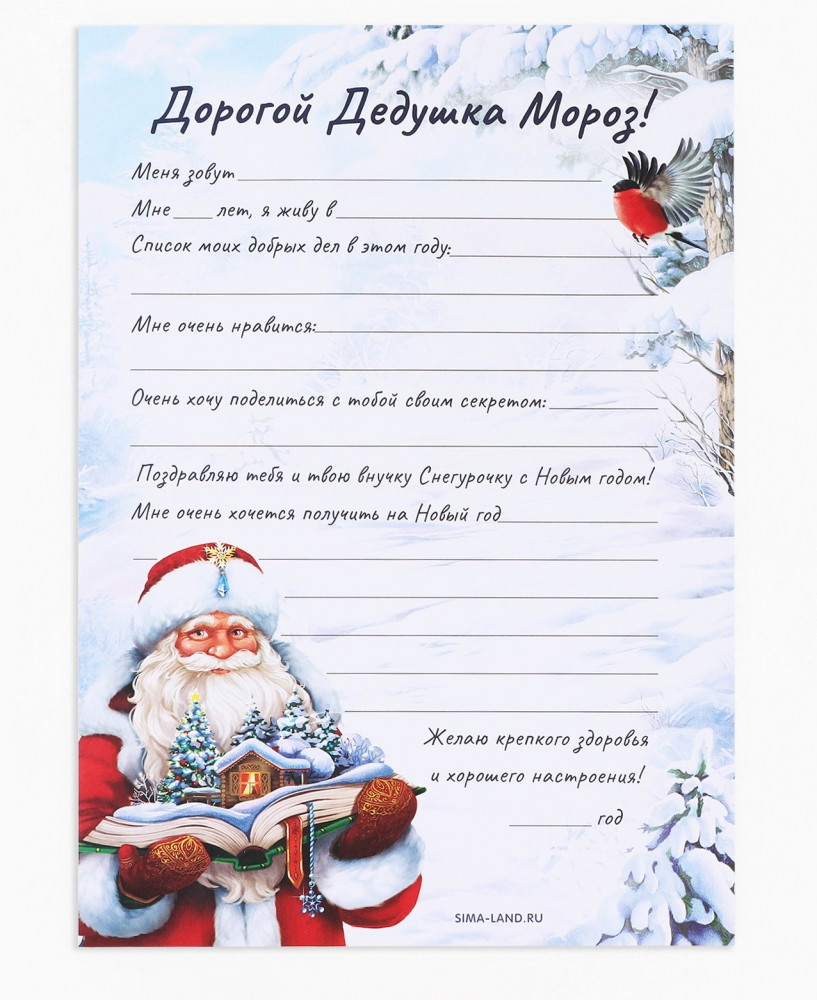 Дорогой Дедушка Мороз!
Меня зовут
Мне ____ лет, я живу в
Список моих добрых дел в этом году:
Мне очень нравится:
Очень хочу поделиться с тобой своим секретом:
Поздравляю тебя и твою внучку Снегурочку с Новым годом!
Мне очень хочется получить на Новый год
Желаю крепкого здоровья
и хорошего настроения!
________ год
SIMA-LAND.RU